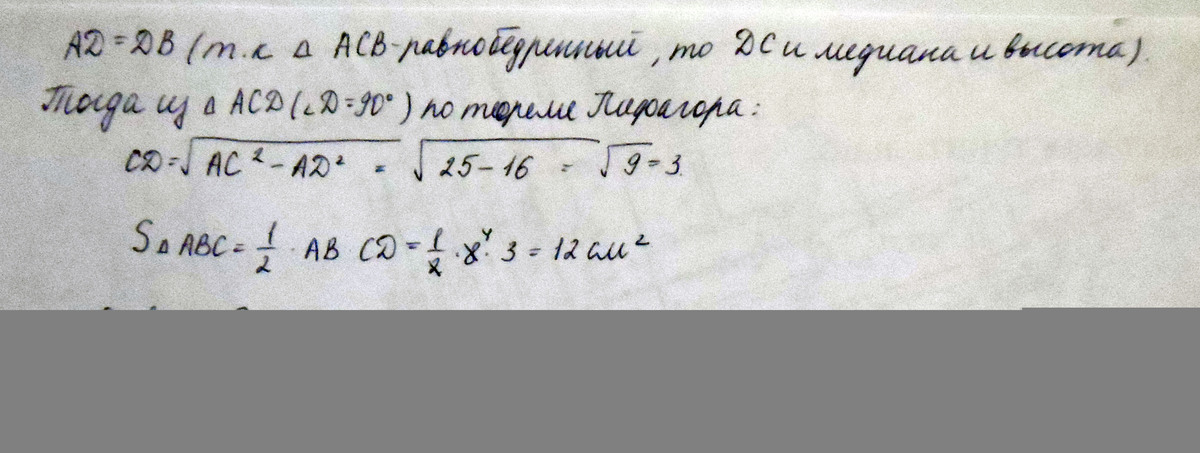 AD = DB (т.к △ ACB-равнобедренный, то DC и медиана и высота).
Тогда из △ ACD (∠D=90°) по теореме Пифагора:
CD = √AC² - AD² = √25-16 = √9 = 3.
S△ABC = 1/2 · AB CD = 1/2 · 8⁴ · 3 = 12 см²